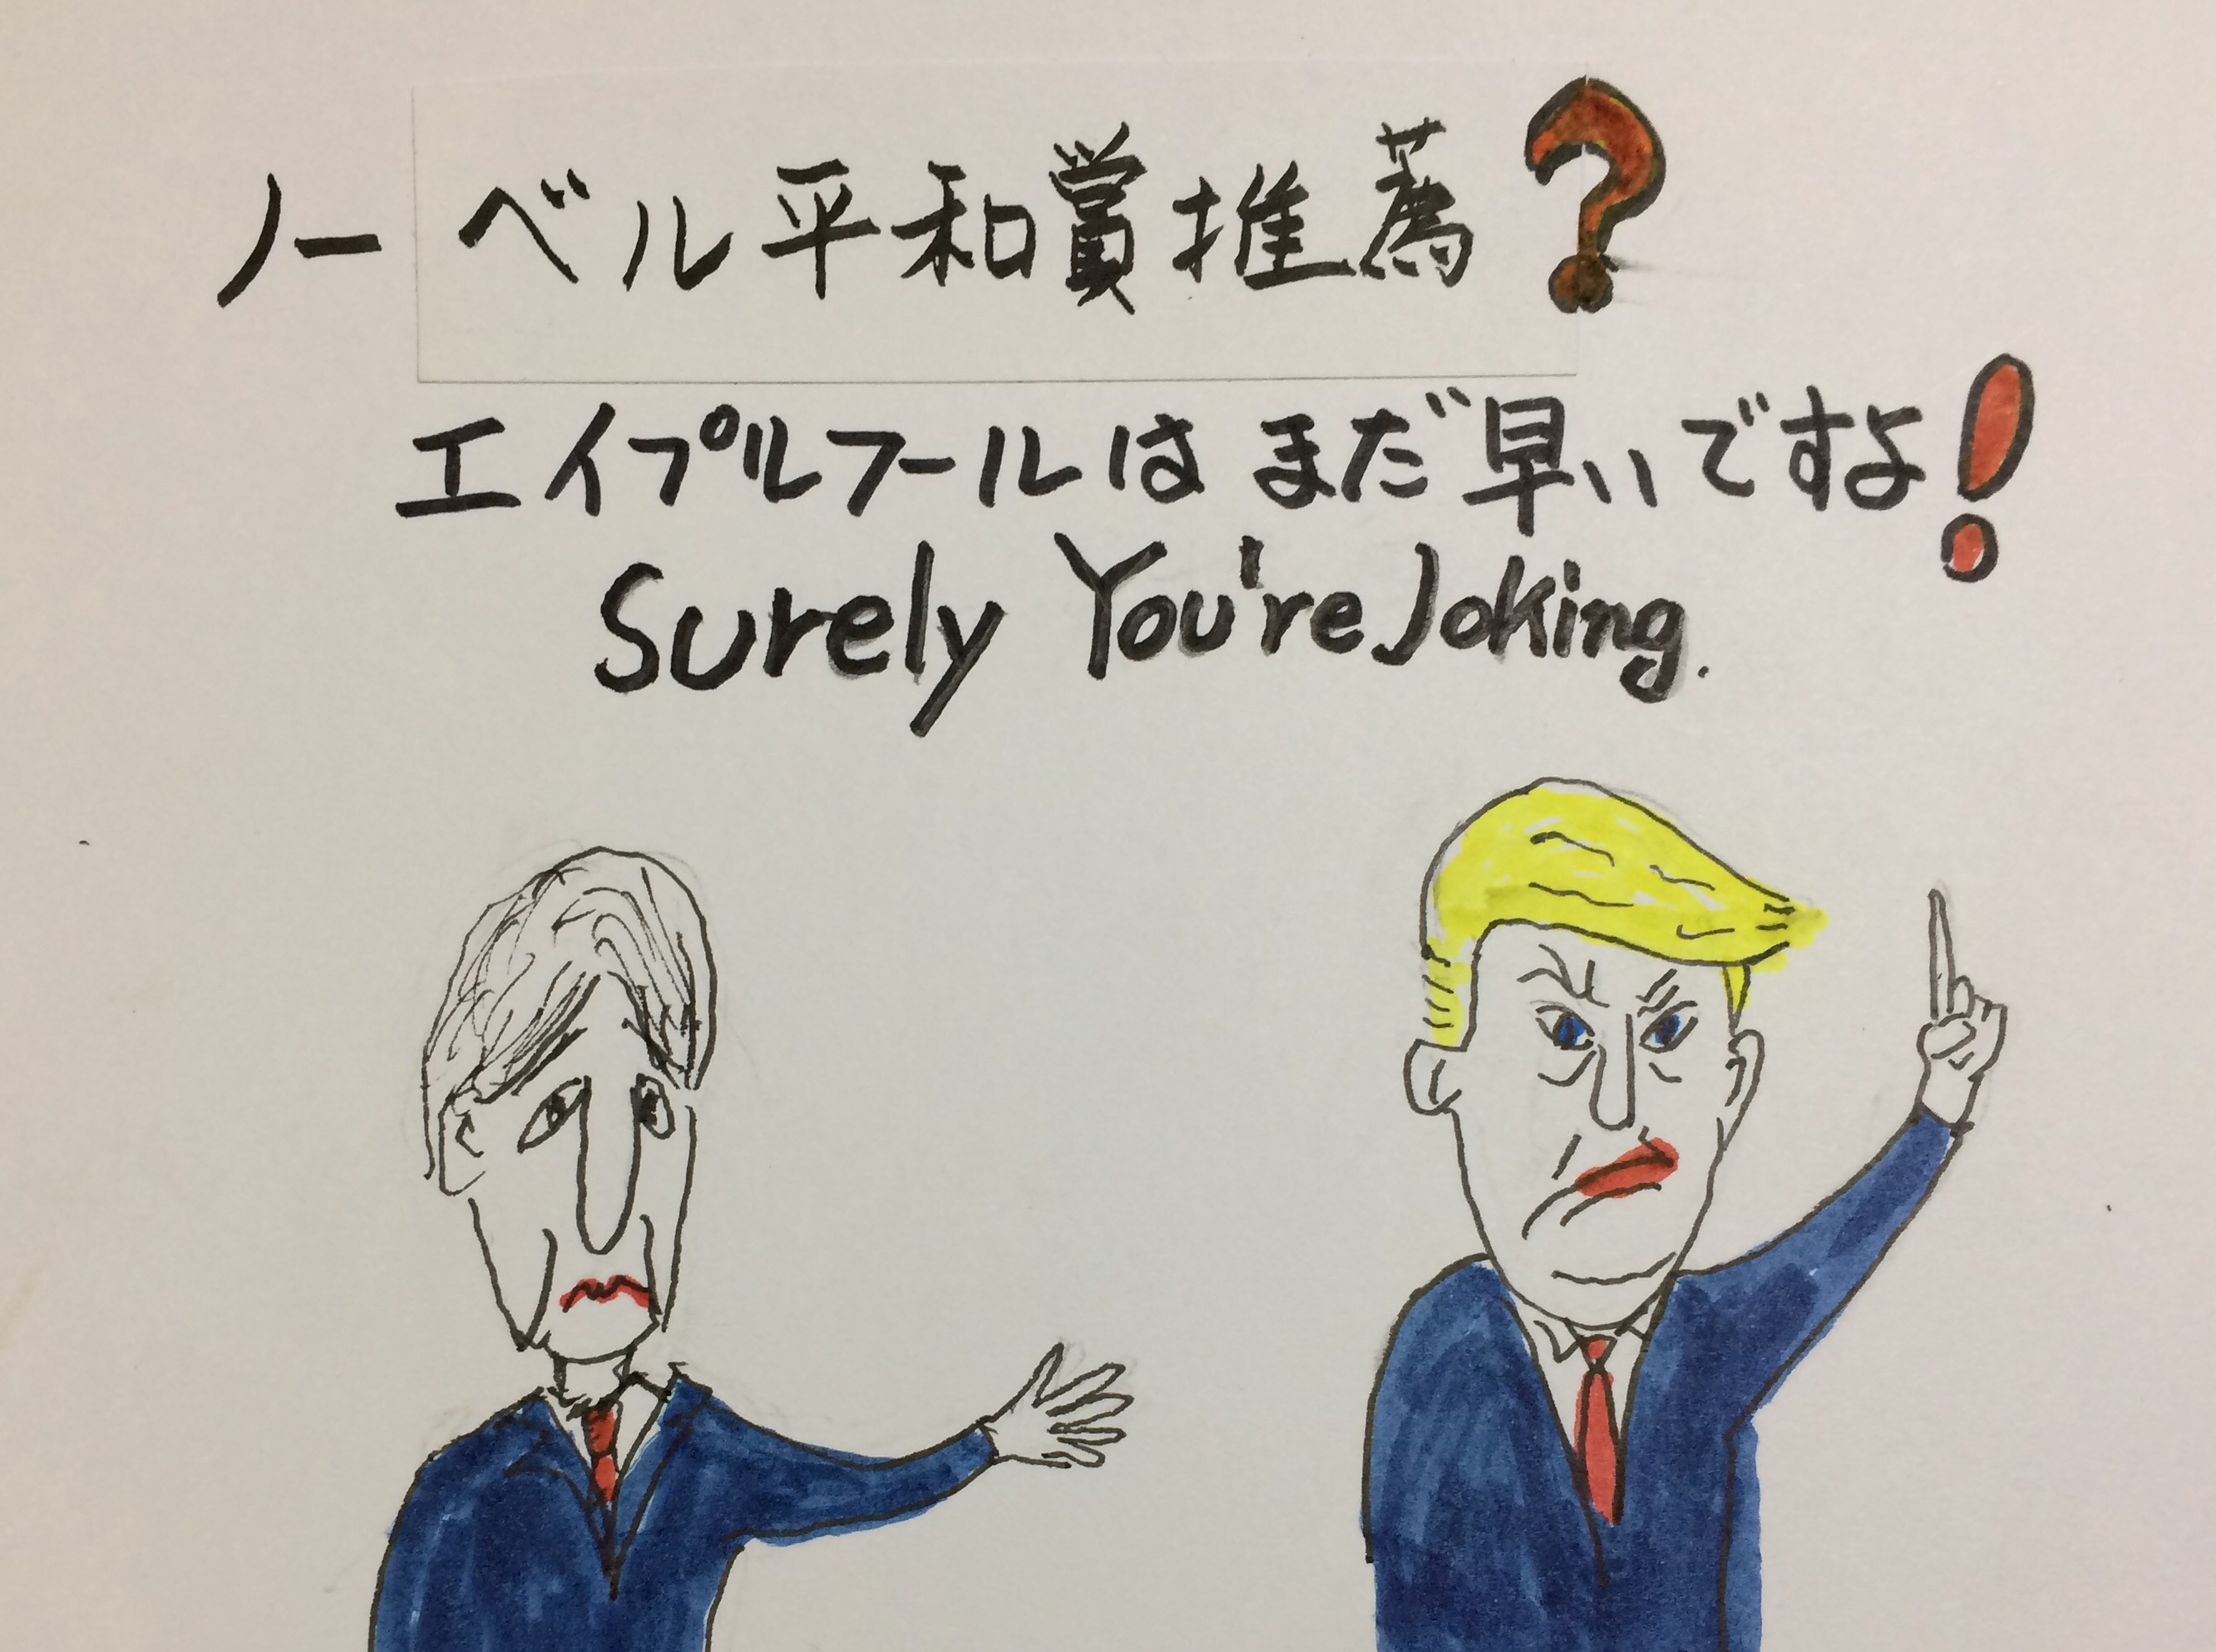 ノーベル平和賞推薦?
エイプルフールはまだ早いですよ!
Surely You're Joking.